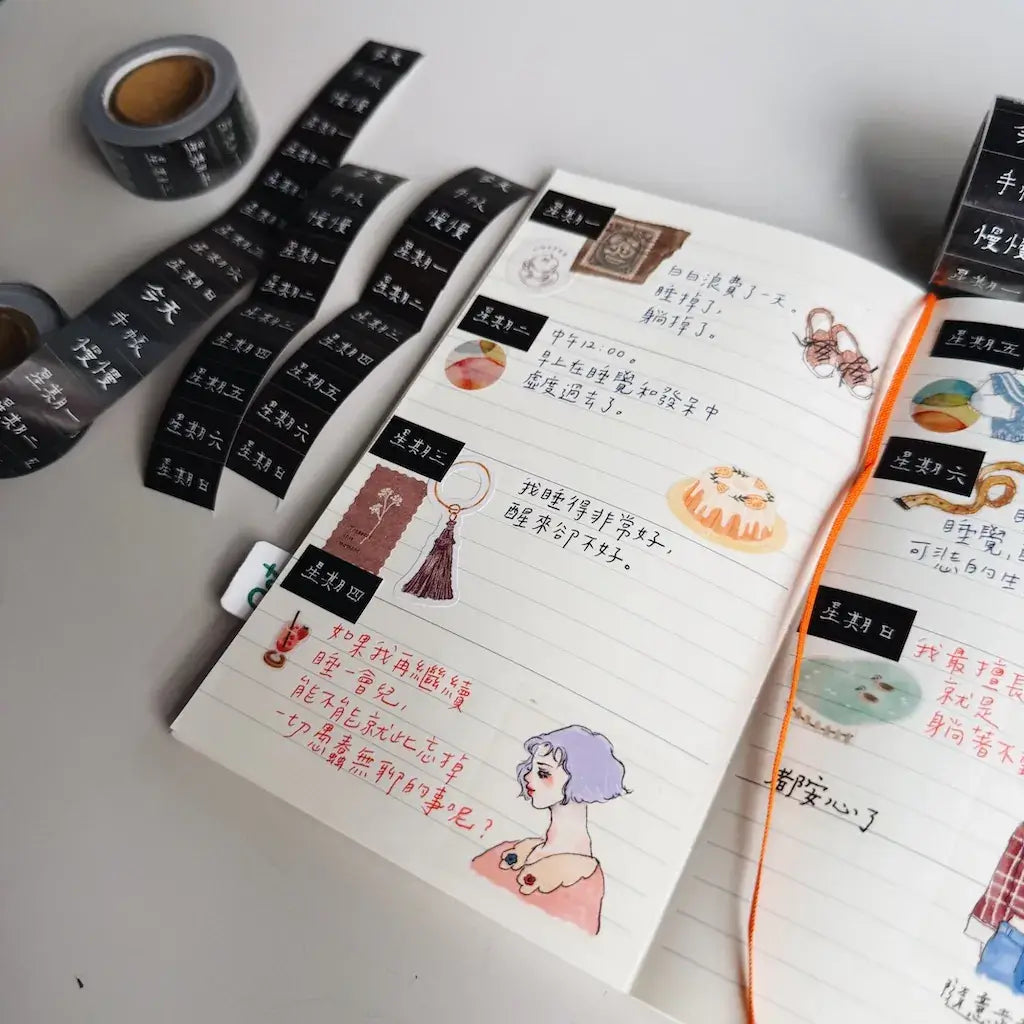 今天
手帳
慢慢
星期一
星期二
星期三
星期四
今天
手帳
慢慢
星期一
星期二
星期六
星期日
慢慢
星期一
星期二
星期三
星期四
星期五
星期六
星期日
今天
手帳
慢慢
星期一
星期二
星期三
星期四
星期五
星期六
星期日
手帳
慢慢
星期一
星期一
白白浪費了一天。
睡掉了,
躺掉了。
星期二
中午12:00。
早上在睡覺和發呆中
虛度過去了。
星期三
我睡得非常好,
醒來卻不好。
星期四
如果我再繼續
睡一會兒,
能不能就此忘掉
一切愚蠢無聊的事呢?
星期五
星期六
睡覺,
可悲的生
星期日
我最擅長
就是
躺著不
都安心了
隨意